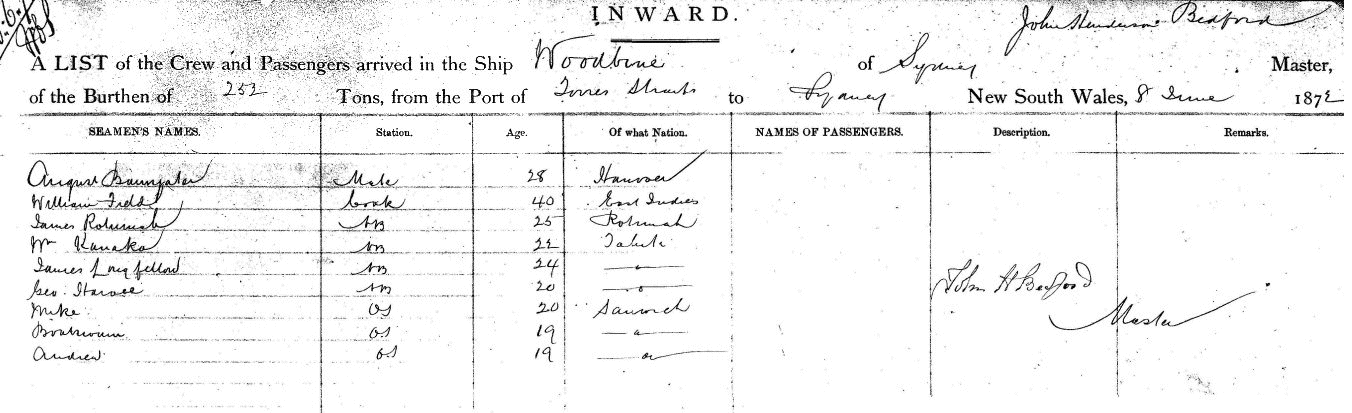 INWARD.
John Henderson Bedford
A LIST of the Crew and Passengers arrived in the Ship Woodbine of Sydney Master,
of the Burthen of 252 Tons, from the Port of Torres Straits to Sydney New South Wales, 8 June 1872
SEAMEN'S NAMES. Station. Age. Of what Nation. NAMES OF PASSENGERS. Description. Remarks.
August Mate 28 Hanover
William Field Cook 40 East Indies
James Rotumah AB 25 Rotumah
Wm Kanaka AB 22
James Longfellow AB 24 — " —
Geo. AB 20 — " —
Mike OS 20
Boatswain OS 19 — " —
Andrew OS 19 — " —
John H Bedford
Master